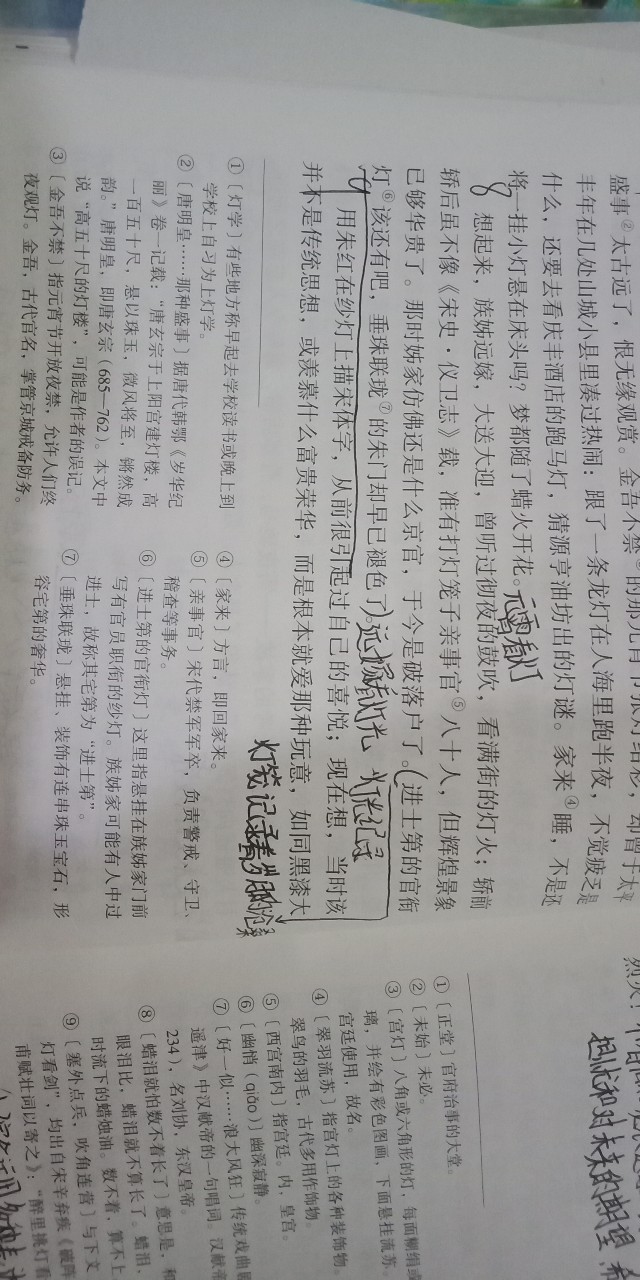 盛事②太古远了，恨无缘观赏。金吾不禁③的那元宵节张灯结彩，却曾于太平
丰年在几处山城小县里凑过热闹：跟了一条龙灯在人海里跑半夜，不觉疲乏是
什么，还要去看庆丰酒店的跑马灯，猜源亨油坊出的灯谜。家来④睡，不是还
将一挂小灯悬在床头吗？梦都随了蜡火开花。
元宵看灯
8
想起来，族姊远嫁，大送大迎，曾听过彻夜的鼓吹，看满街的灯火；轿前
轿后虽不像《宋史·仪卫志》载，准有打灯笼子亲事官⑤八十人，但辉煌景象
已够华贵了。那时姊家仿佛还是什么京官，于今是破落户了。（进士第的官衔
灯⑥该还有吧，垂珠联珑⑦的朱门却早已褪色了）。
用朱红在纱灯上描宋体字，从前很引起过自己的喜悦；现在想，当时该
并不是传统思想，或羡慕什么富贵荣华，而是根本就爱那种玩意，如同黑漆大
①〔灯学〕有些地方称早起去学校读书或晚上到
学校上自习为上灯学。
②〔唐明皇……那种盛事〕据唐代韩鄂《岁华纪
丽》卷一记载：“唐玄宗于上阳宫建灯楼，高
一百五十尺，悬以珠玉，微风将至，锵然成
韵。”唐明皇，即唐玄宗（685—762）。本文中
说“高五十尺的灯楼”，可能是作者的误记。
③〔金吾不禁〕指元宵节开放夜禁，允许人们终
夜观灯。金吾，古代官名，掌管京城戒备防务。
④〔家来〕方言，即回家来。
⑤〔亲事官〕宋代禁军军卒，负责警戒、守卫、
稽查等事务。
⑥〔进士第的官衔灯〕这里指悬挂在族姊家门前
写有官员职衔的纱灯。族姊家可能有人中过
进士，故称其宅第为“进士第”。
⑦〔垂珠联珑〕悬挂、装饰有连串珠玉宝石，形
容宅第的奢华。
①〔正堂〕官府治事的大堂。
②〔未始〕未必。
③〔宫灯〕八角或六角形的灯，每面糊绢或
璃，并绘有彩色图画，下面悬挂流苏。
宫廷使用，故名。
④〔翠羽流苏〕指宫灯上的各种装饰物。
翠鸟的羽毛，古代多用作饰物。
⑤〔西宫南内〕指宫廷。内，皇宫。
⑥〔幽悄（qiǎo）〕幽深寂静。
⑦〔好一似……浪大风狂〕传统戏曲剧
遥津》中汉献帝的一句唱词。汉献帝
234），名刘协，东汉皇帝。
⑧〔蜡泪就怕数不着长了〕意思是，和
眼泪比，蜡泪就不算长了。蜡泪，
时流下的蜡烛油。数不着，算不上
⑨〔塞外点兵，吹角连营〕与下文
灯看剑”，均出自宋辛弃疾《破阵
甫赋壮词以寄之》：“醉里挑灯看